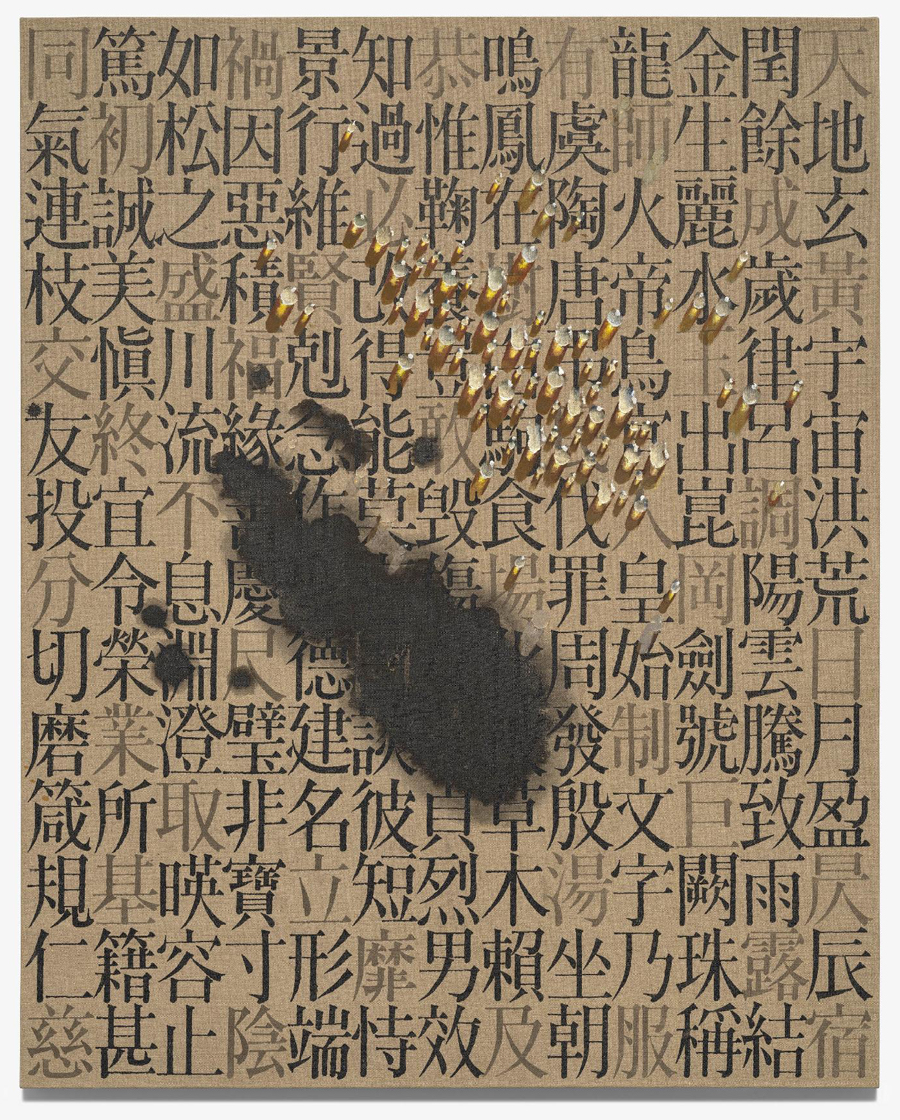 天地玄黃宇宙洪荒日月盈昃辰宿
閏餘成歲律呂調陽雲騰致雨露結
金生麗水玉出崑岡劍號巨闕珠稱
龍師火帝鳥官人皇始制文字乃服
有虞陶唐伐罪周發殷湯坐朝
鳴鳳在樹駒食場草木賴及
恭惟鞠養豈敢毀傷貞烈男效
知過必改得能莫談彼短靡恃
景行維賢剋念作德建名立形端
禍因惡積福緣善慶尺璧非寶寸陰
如松之盛川流不息淵澄取暎容止
篤初誠美愼終宜令榮業所基籍甚
同氣連枝交友投分切磨箴規仁慈